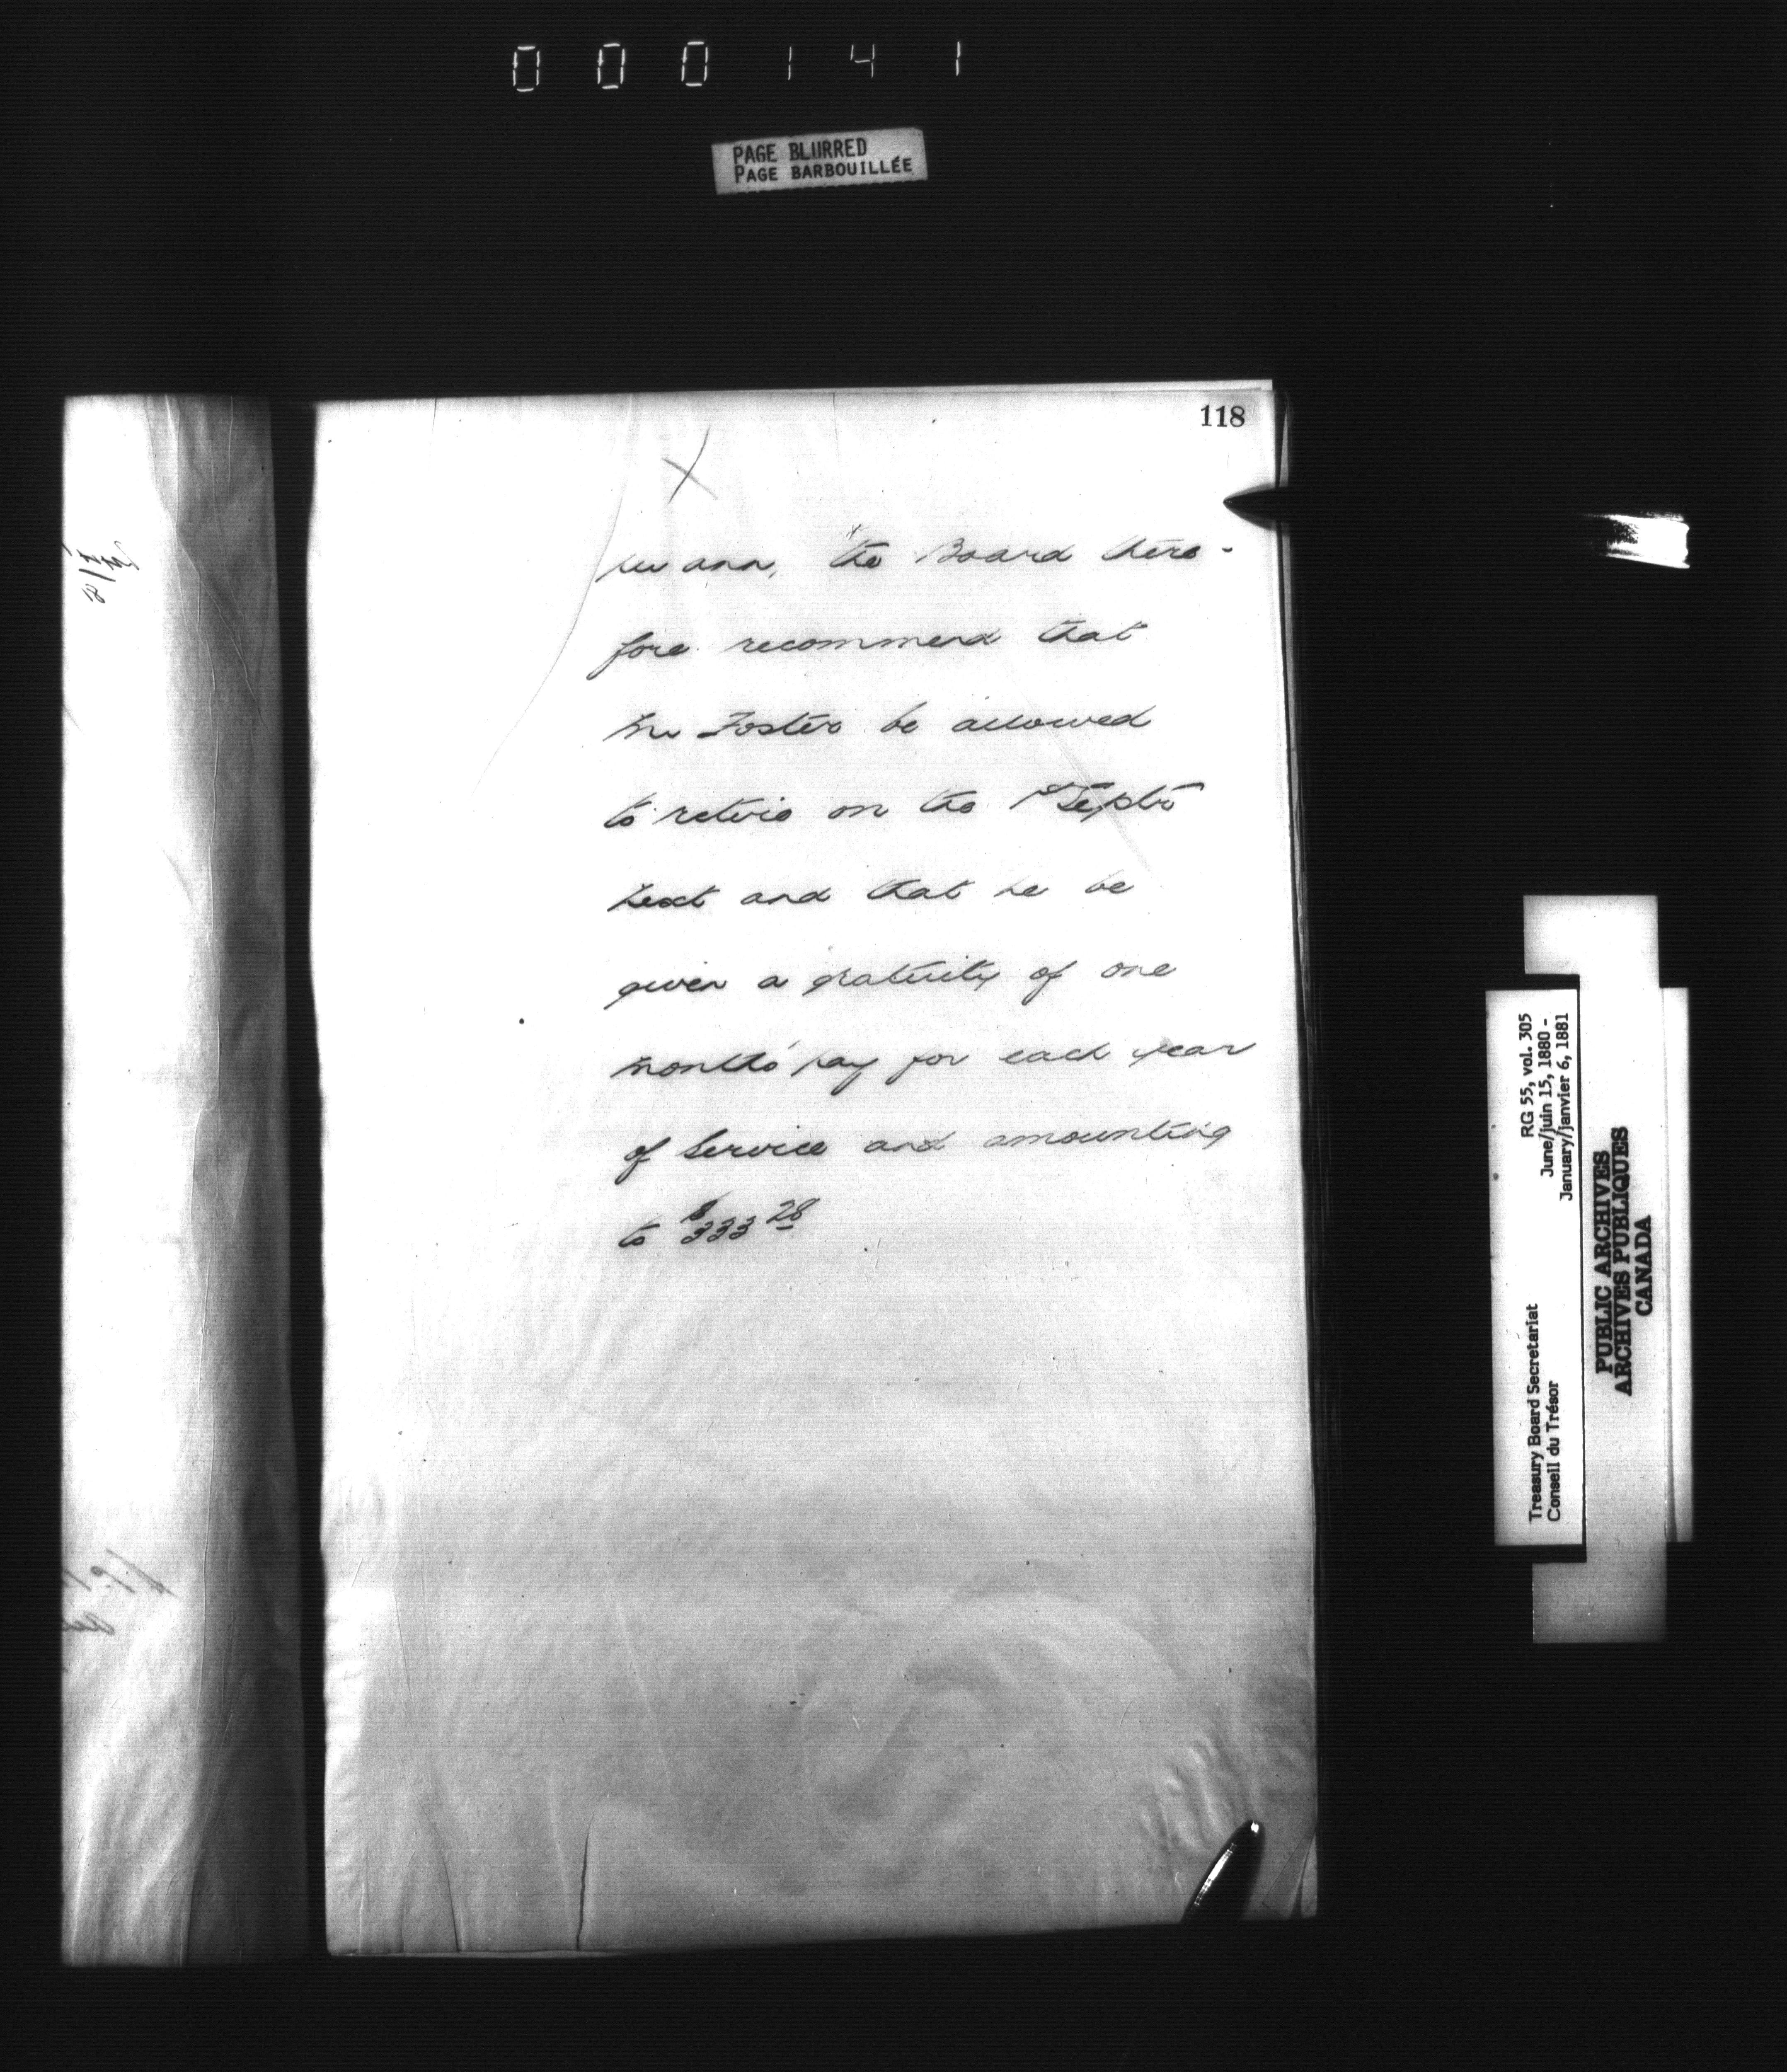 000141
PAGE BLURRED
PAGE BARBOUILLÉE
118
X
per ann, the Board there-
fore recommend that
Mr Foster be allowed
to retire on the 1st Septr
next and that he be
given a gratuity of one
month's pay for each year
of Service and amounting
to $333 28
RG 55, vol. 305
June/juin 15, 1880 -
January/janvier 6, 1881
Treasury Board Secretariat
Conseil du Trésor
PUBLIC ARCHIVES
ARCHIVES PUBLIQUES
CANADA